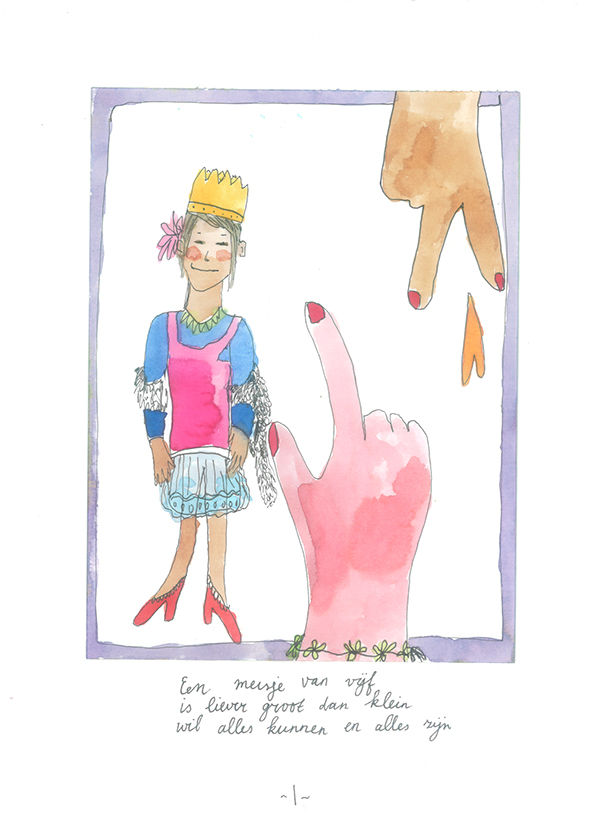 Een meisje van vijf
is liever groot dan klein
wil alles kunnen en alles zijn
~1~